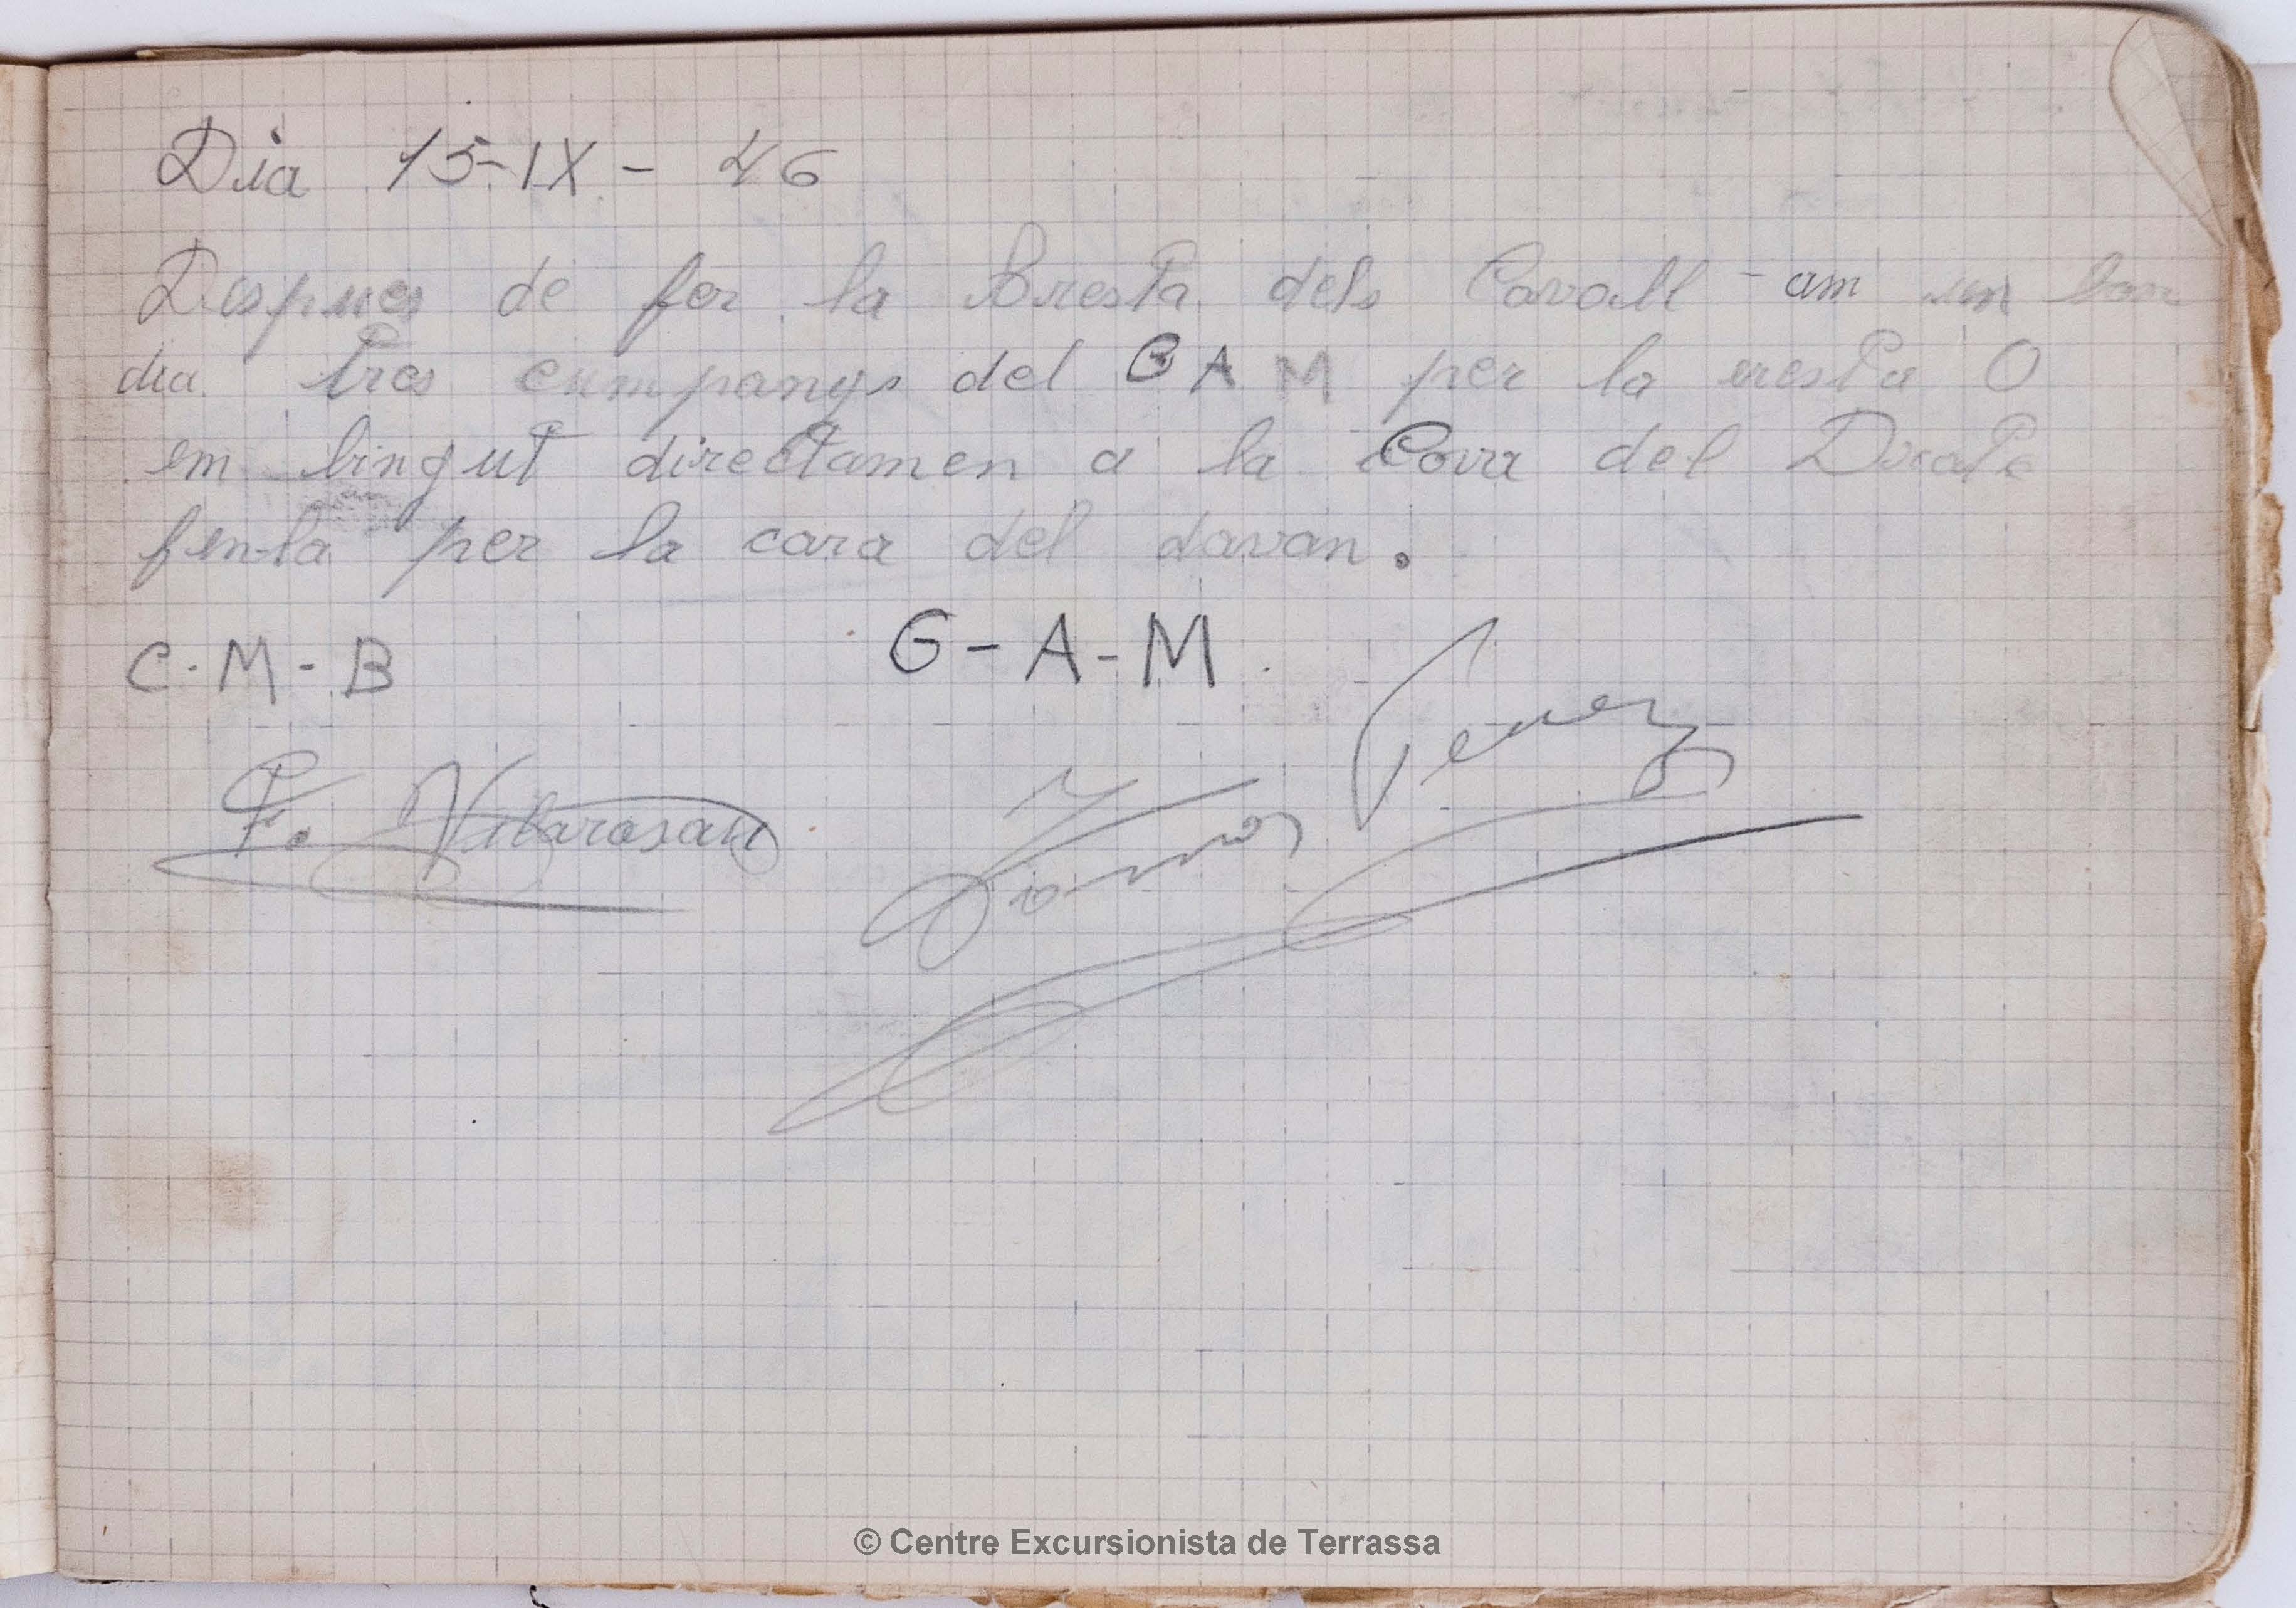 Dia 15-IX-46
Despues de fer la Cresta dels Cavall am un bon
dia tres cumpanys del G A M per la cresta O
em bingut directamen a la Cova del Drac
fen-la per la cara del davan.
C-M-B G-A-M.
F. Vilarasau
© Centre Excursionista de Terrassa